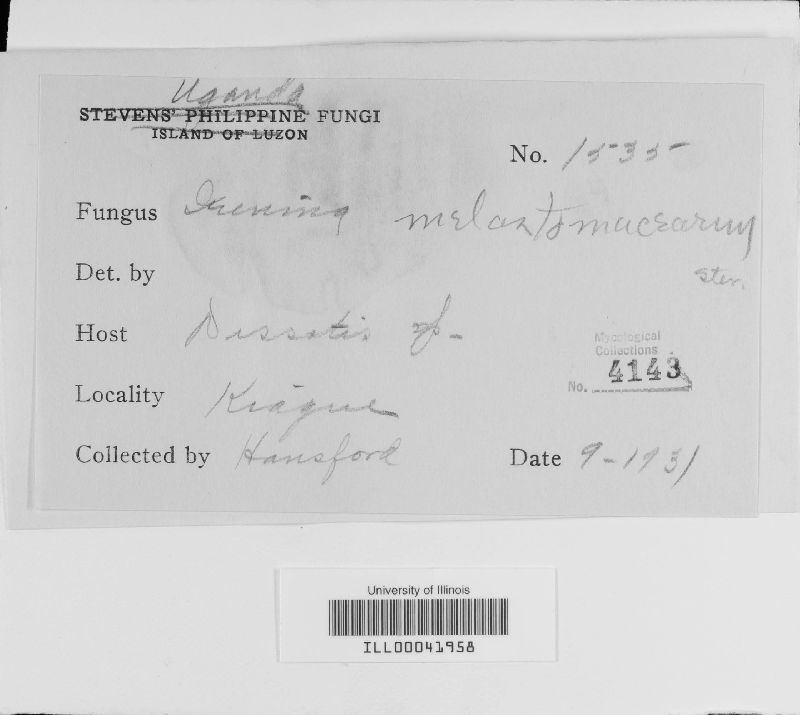 Uganda
STEVENS' PHILIPPINE FUNGI
ISLAND OF LUZON
No. 1535
Fungus Irenina melastomacearum
Stev.
Det. by
Host Dissotis sp.
Mycological
Collections
No. 4143
Locality
Collected by Hansford Date 9-1931
University of Illinois
ILL00041958